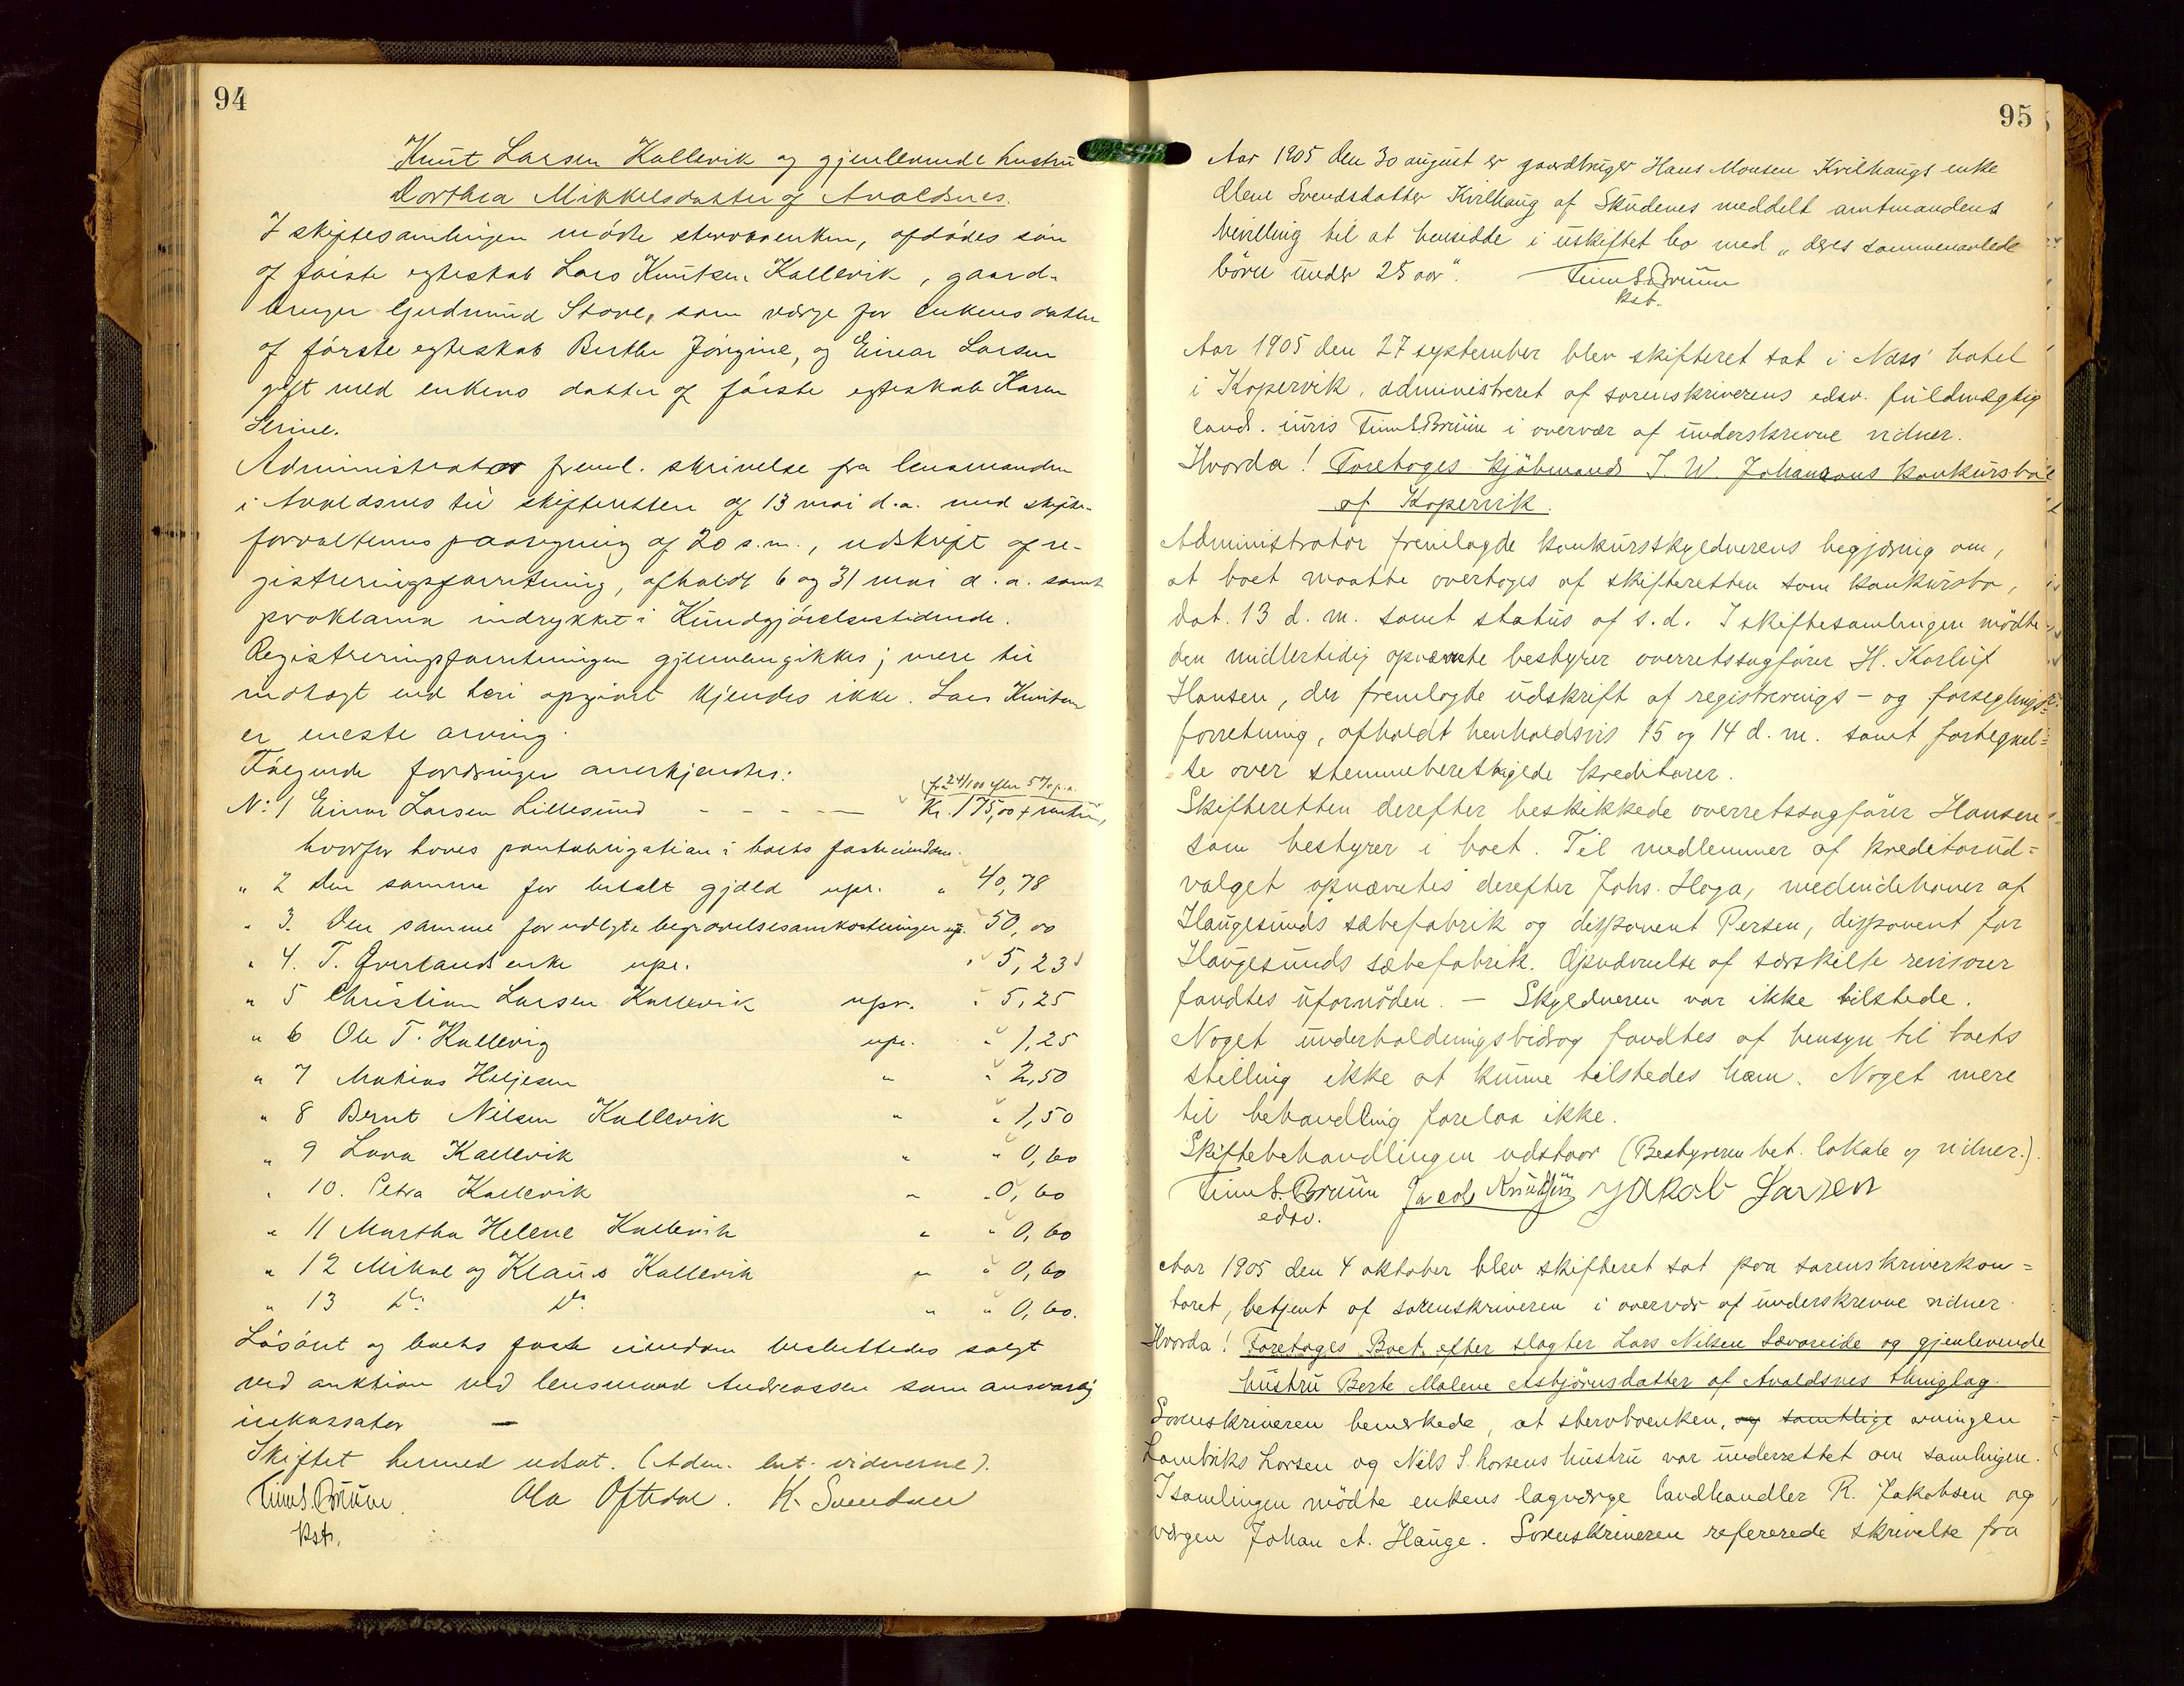 94
Knut Larsen Kallevik og gjenlevende hustru
Dorthea Mikkelsdatter af Avaldsnes.
I skiftesamlingen mødte stervboenken, afdødes søn
af første egteskab Lars Knutsen Kallevik, gaard-
bruger Gudmund Stave, som værge for enkens datter
af første egteskab Berthe Jørgine, og Einar Larsen
gift med enkens datter af første egteskab Karen
Serine.
Administrator freml. skrivelse fra lensmanden
i Avaldsnes til skifteretten af 13 mai d.a. med skifte-
forvalterens paategning af 20 s.m., udskrift af re-
gistreringsforretning, afholdt 6 og 31 mai d.a. samt
proklama indrykket i Kundgjørelsestidende.
Registreringsforretningen gjennemgikkes; mere til
indtægt end deri opgivet kjendes ikke. Lars Knutsen
er eneste arving.
Følgende fordringer anerkjendtes:
fra 24/1 00 efter 5% p.a.
N: 1 Einar Larsen Lillesund - - - - — Kr. 175,00 + renter,
hvorfor haves pantobligation i boets faste eiendom.
" 2 den samme for betalt gjæld upr. " 40,78
" 3. Den samme for udlagte begravelsesomkostninger up. 50,00
" 4. T. Øverlands enke upr. " 5,23
" 5 Christian Larsen Kallevik upr. " 5,25
" 6 Ole T. Kallevig upr. " 1,25
" 7 Mathias Heljesen " " 2,50
" 8 Bernt Nilsen Kallevik " " 1,50
" 9 Lava Kallevik " " 0,60
" 10. Petra Kallevik " " 0,60
" 11 Martha Helene Kallevik " " 0,60
" 12 Mikal og Klaus Kallevik " " 0,60
" 13 Do: Do. " " 0,60.
Løsøret og boets faste eiendom besluttedes solgt
ved auktion ved lensmand Andreassen som ansvarlig
inkassator —
Skiftet hermed udsat. (Adm. bet. vidnerne).
Finn S. Bruun. Ola Oftedal. K. Svendsen
kst.
95
Aar 1905 den 30 august er gaardbruger Hans Monsen Kvilhaugs enke
Elene Svendsdatter Kvilhaug af Skudenes meddelt amtmandens
bevilling til at hensidde i uskiftet bo med „deres sammenavlede
børn under 25 aar". Finn S. Bruun
kst.
Aar 1905 den 27 september blev skifteret sat i Næss' hotel
i Kopervik, administreret af sorenskriverens edsv. fuldmægtig
cand. iuris Finn S. Bruun i overvær af underskrevne vidner.
Hvorda! Foretoges kjøbmand J. W. Johansons konkursbo
af Kopervik.
Administrator fremlagde konkursskyldnerens begjæring om,
at boet maatte overtages af skifteretten som konkursbo,
dat. 13 d. m. samt status af s.d. I skiftesamlingen mødte
den midlertidig opnævnte bestyrer overretssagfører H. Karluf
Hansen, der fremlagde udskrift af registrerings- og forseglings-
forretning, afholdt henholdsvis 15 og 14 d. m. samt fortegnel=
se over stemmeberettigede kreditorer.
Skifteretten derefter beskikkede overretssagfører Hansen
som bestyrer i boet. Til medlemmer af kreditorud=
valget opnævntes derefter Johs. Haga, medindehaver af
Haugesunds sæbefabrik og disponent Persen, disponent for
Haugesunds sæbefabrik. Opnævnelse af særskilte revisorer
fandtes ufornøden. — Skyldneren var ikke tilstede.
Noget underholdningsbidrag fandtes af hensyn til boets
stilling ikke at kunne tilstedes ham. Noget mere
til behandling forelaa ikke.
Skiftebehandlingen udstaar (Bestyreren bet. lokale og vidner.).
Finn S. Bruun Jacob Knudsen Jakob Larsen
edsv.
Aar 1905 den 4 oktober blev skifteret sat paa sorenskriverkon=
toret, betjent af sorenskriveren i overvær af underskrevne vidner.
Hvorda! Foretoges Boet efter slagter Lars Nilsen Sævareide og gjenlevende
hustru Berte Malene Asbjørnsdatter af Avaldsnes thinglag.
Sorenskriveren bemerkede, at stervboenken, og samtlige arvingen
Lambriks Larsen og Nels S. Larsens hustru var underrettet om samlingen.
I samlingen mødte enkens lagværge landhandler R. Jakobsen og
værgen Johan A. Hauge. Sorenskriveren refererede skrivelse fra